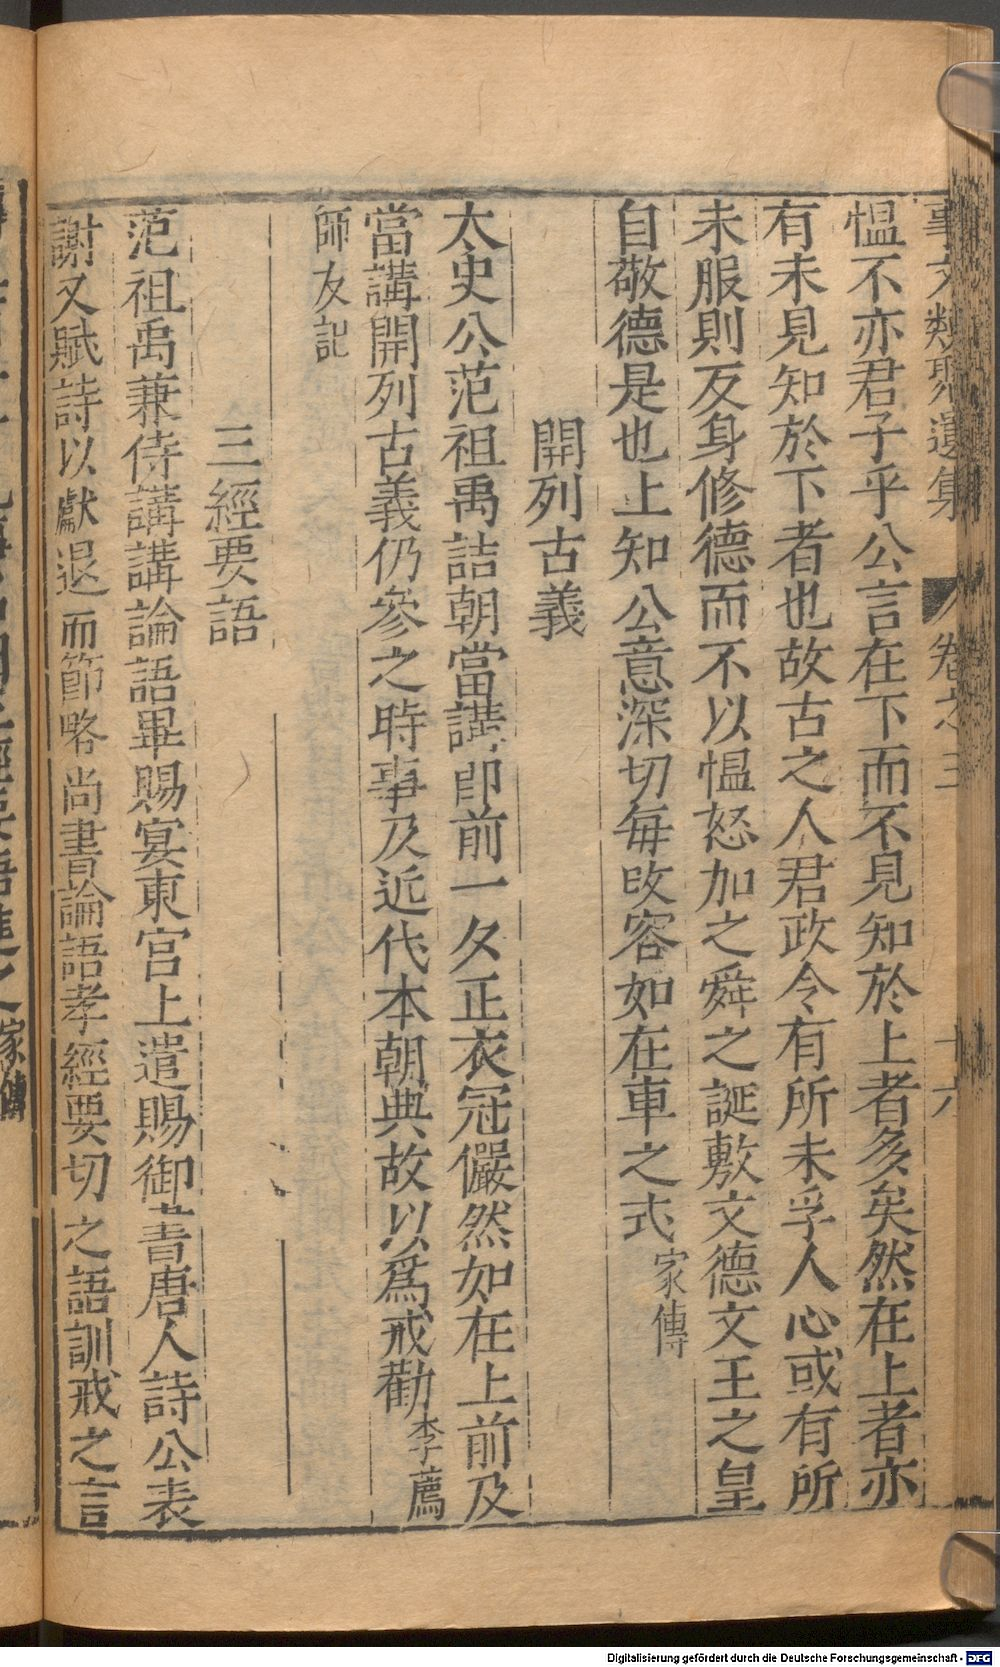 事文類聚遺集 卷之三 十六
愠不亦君子乎公言在下而不見知於上者多矣然在上者亦
有未見知於下者也故古之人君政令有所未孚人心或有所
未服則反身修德而不以愠怒加之舜之誕敷文德文王之皇
自敬德是也上知公意深切每改容如在車之式家傳
開列古義
太史公范祖禹詰朝當講即前一夕正衣冠儼然如在上前及
當講開列古義仍參之時事及近代本朝典故以爲戒勸李廌
師友記
三經要語
范祖禹兼侍講講論語畢賜宴東宮上遣賜御書唐人詩公表
謝又賦詩以獻退而節略尚書論語孝經要切之語訓戒之言
家傳
Digitalisierung gefördert durch die Deutsche Forschungsgemeinschaft - DFG